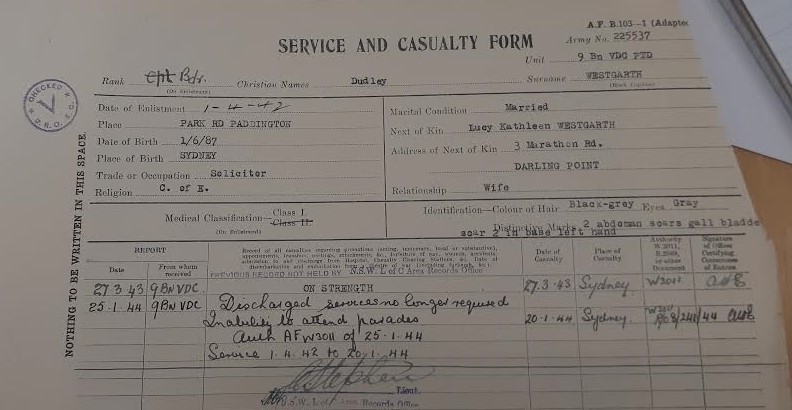 A.F. B.103—1 (Adapted
SERVICE AND CASUALTY FORM
Army No. 225537
Unit 9 Bn VDC PTD
Rank Bdr. Christian Names Dudley Surname WESTGARTH
(On Enlistment) (Block Capitals)
CHECKED
Date of Enlistment 1-4-42
Place PARK RD PADDINGTON
Date of Birth 1/6/87
Place of Birth SYDNEY
Trade or Occupation Solicitor
Religion C. of E.
Marital Condition Married
Next of Kin Lucy Kathleen WESTGARTH
Address of Next of Kin 3 Marathon Rd.
DARLING POINT
Relationship Wife
Medical Classification—Class I.
Class II.
(On Enlistment)
Identification—Colour of Hair Black-grey Eyes Gray
Distinctive Marks 2 abdoman scars gall bladde
scar 2 in base left hand
NOTHING TO BE WRITTEN IN THIS SPACE.
REPORT
Date
From whom received
PREVIOUS RECORD NOT HELD BY N.S.W. L of C Area Records Office
Date of Casualty
Place of Casualty
Authority W.3011, or other Document
Signature of Officer Certifying Correctness of Entries
27.3 43 9BN VDC ON STRENGTH 27.3.43 Sydney W3011
25-1.44 9BN VDC Discharged services no longer required
Inability to attend parades 20-1.44 Sydney
Auth AFW3011 of 25-1-44
Service 1.4.42 to 20.1.44
Lieut.
N.S.W. L of C Area Records Office